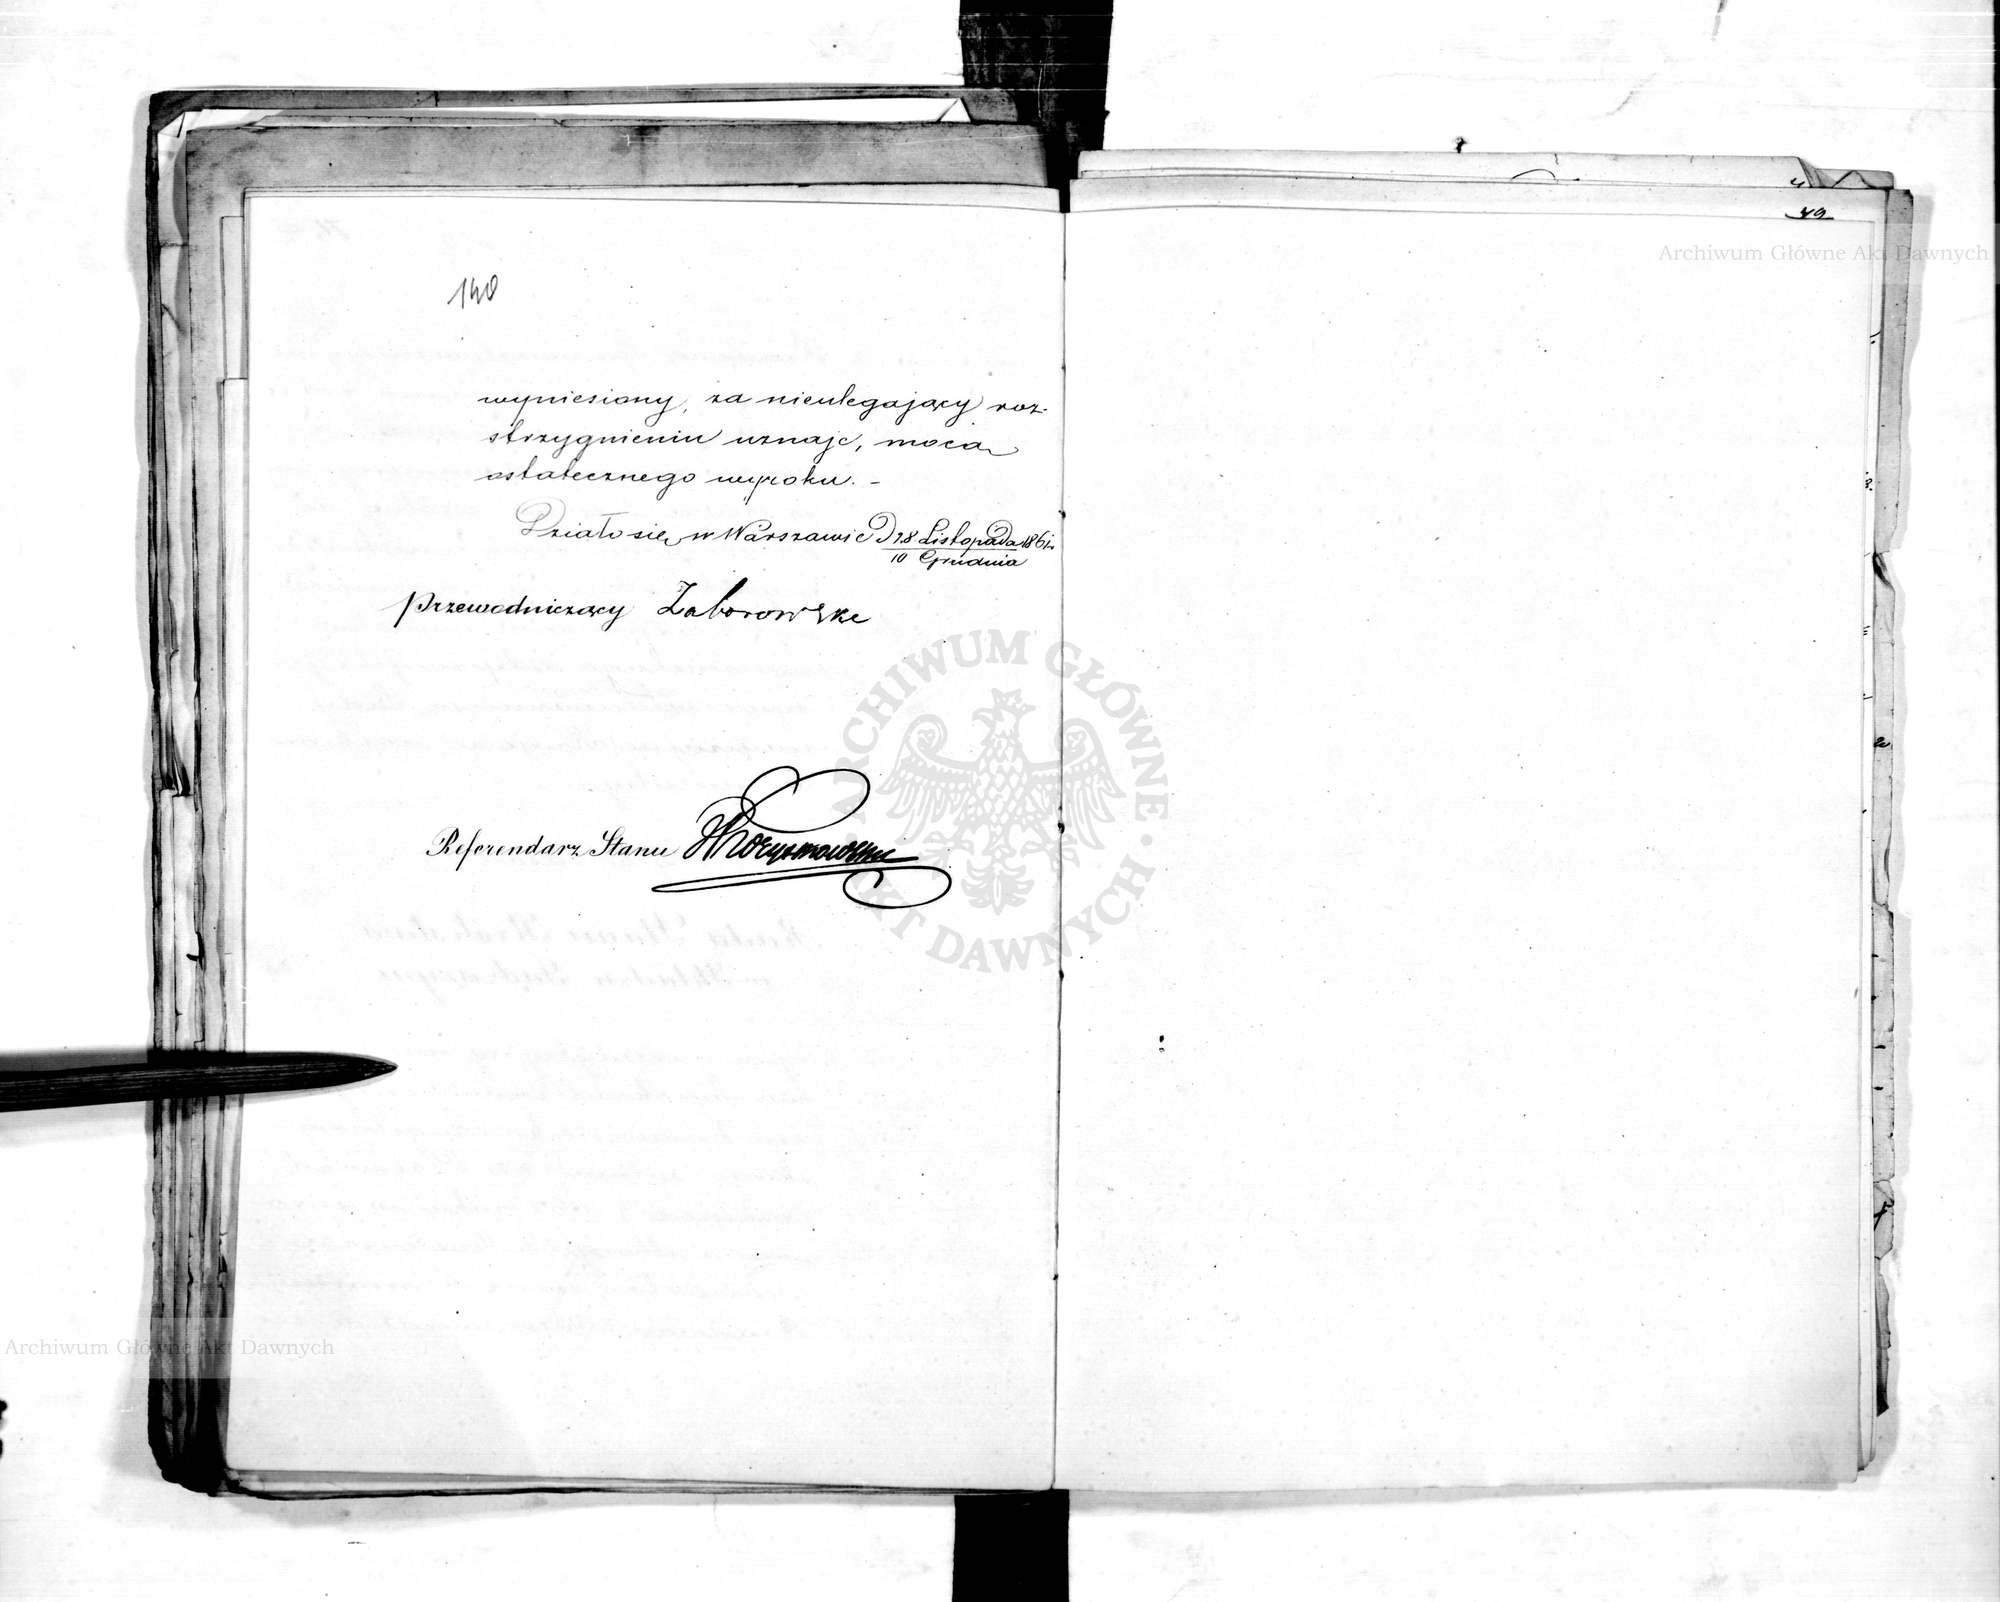 140
wyniesiony, za nieulegający roz-
strzygnieniu uznaje, mocą
ostatecznego wyroku. -
Działo się w Warszawie D 28 Listopada 1861 r.
10 Grudnia
Przewodniczący Zaborowski
Referendarz Stanu
Archiwum Główne Akt Dawnych
ARCHIWUM GŁÓWNE AKT DAWNYCH
Archiwum Główne Akt Dawnych